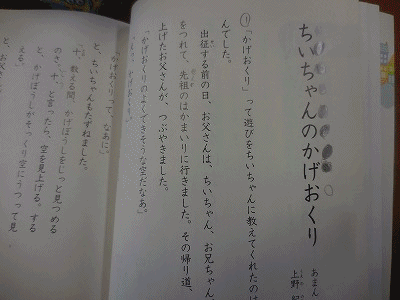 ちいちゃんのかげおくり
あまん
上野
①「かげおくり」って遊びをちいちゃんに教えてくれたのは
んでした。
出征する前の日、お父さんは、ちいちゃん、お兄ちゃん、
をつれて、先祖のはかまいりに行きました。その帰り道、
上げたお父さんが、つぶやきました。
「かげおくりのよくできそうな空だなあ。」
「えっ、かげおくり。」
「かげおくりって、なあに。」
と、ちいちゃんもたずねました。
「十、数える間、かげぼうしをじっと見つめる
のさ。十、と言ったら、空を見上げる。する
と、かげぼうしがそっくり空にうつって見
える。」
と、お父さん